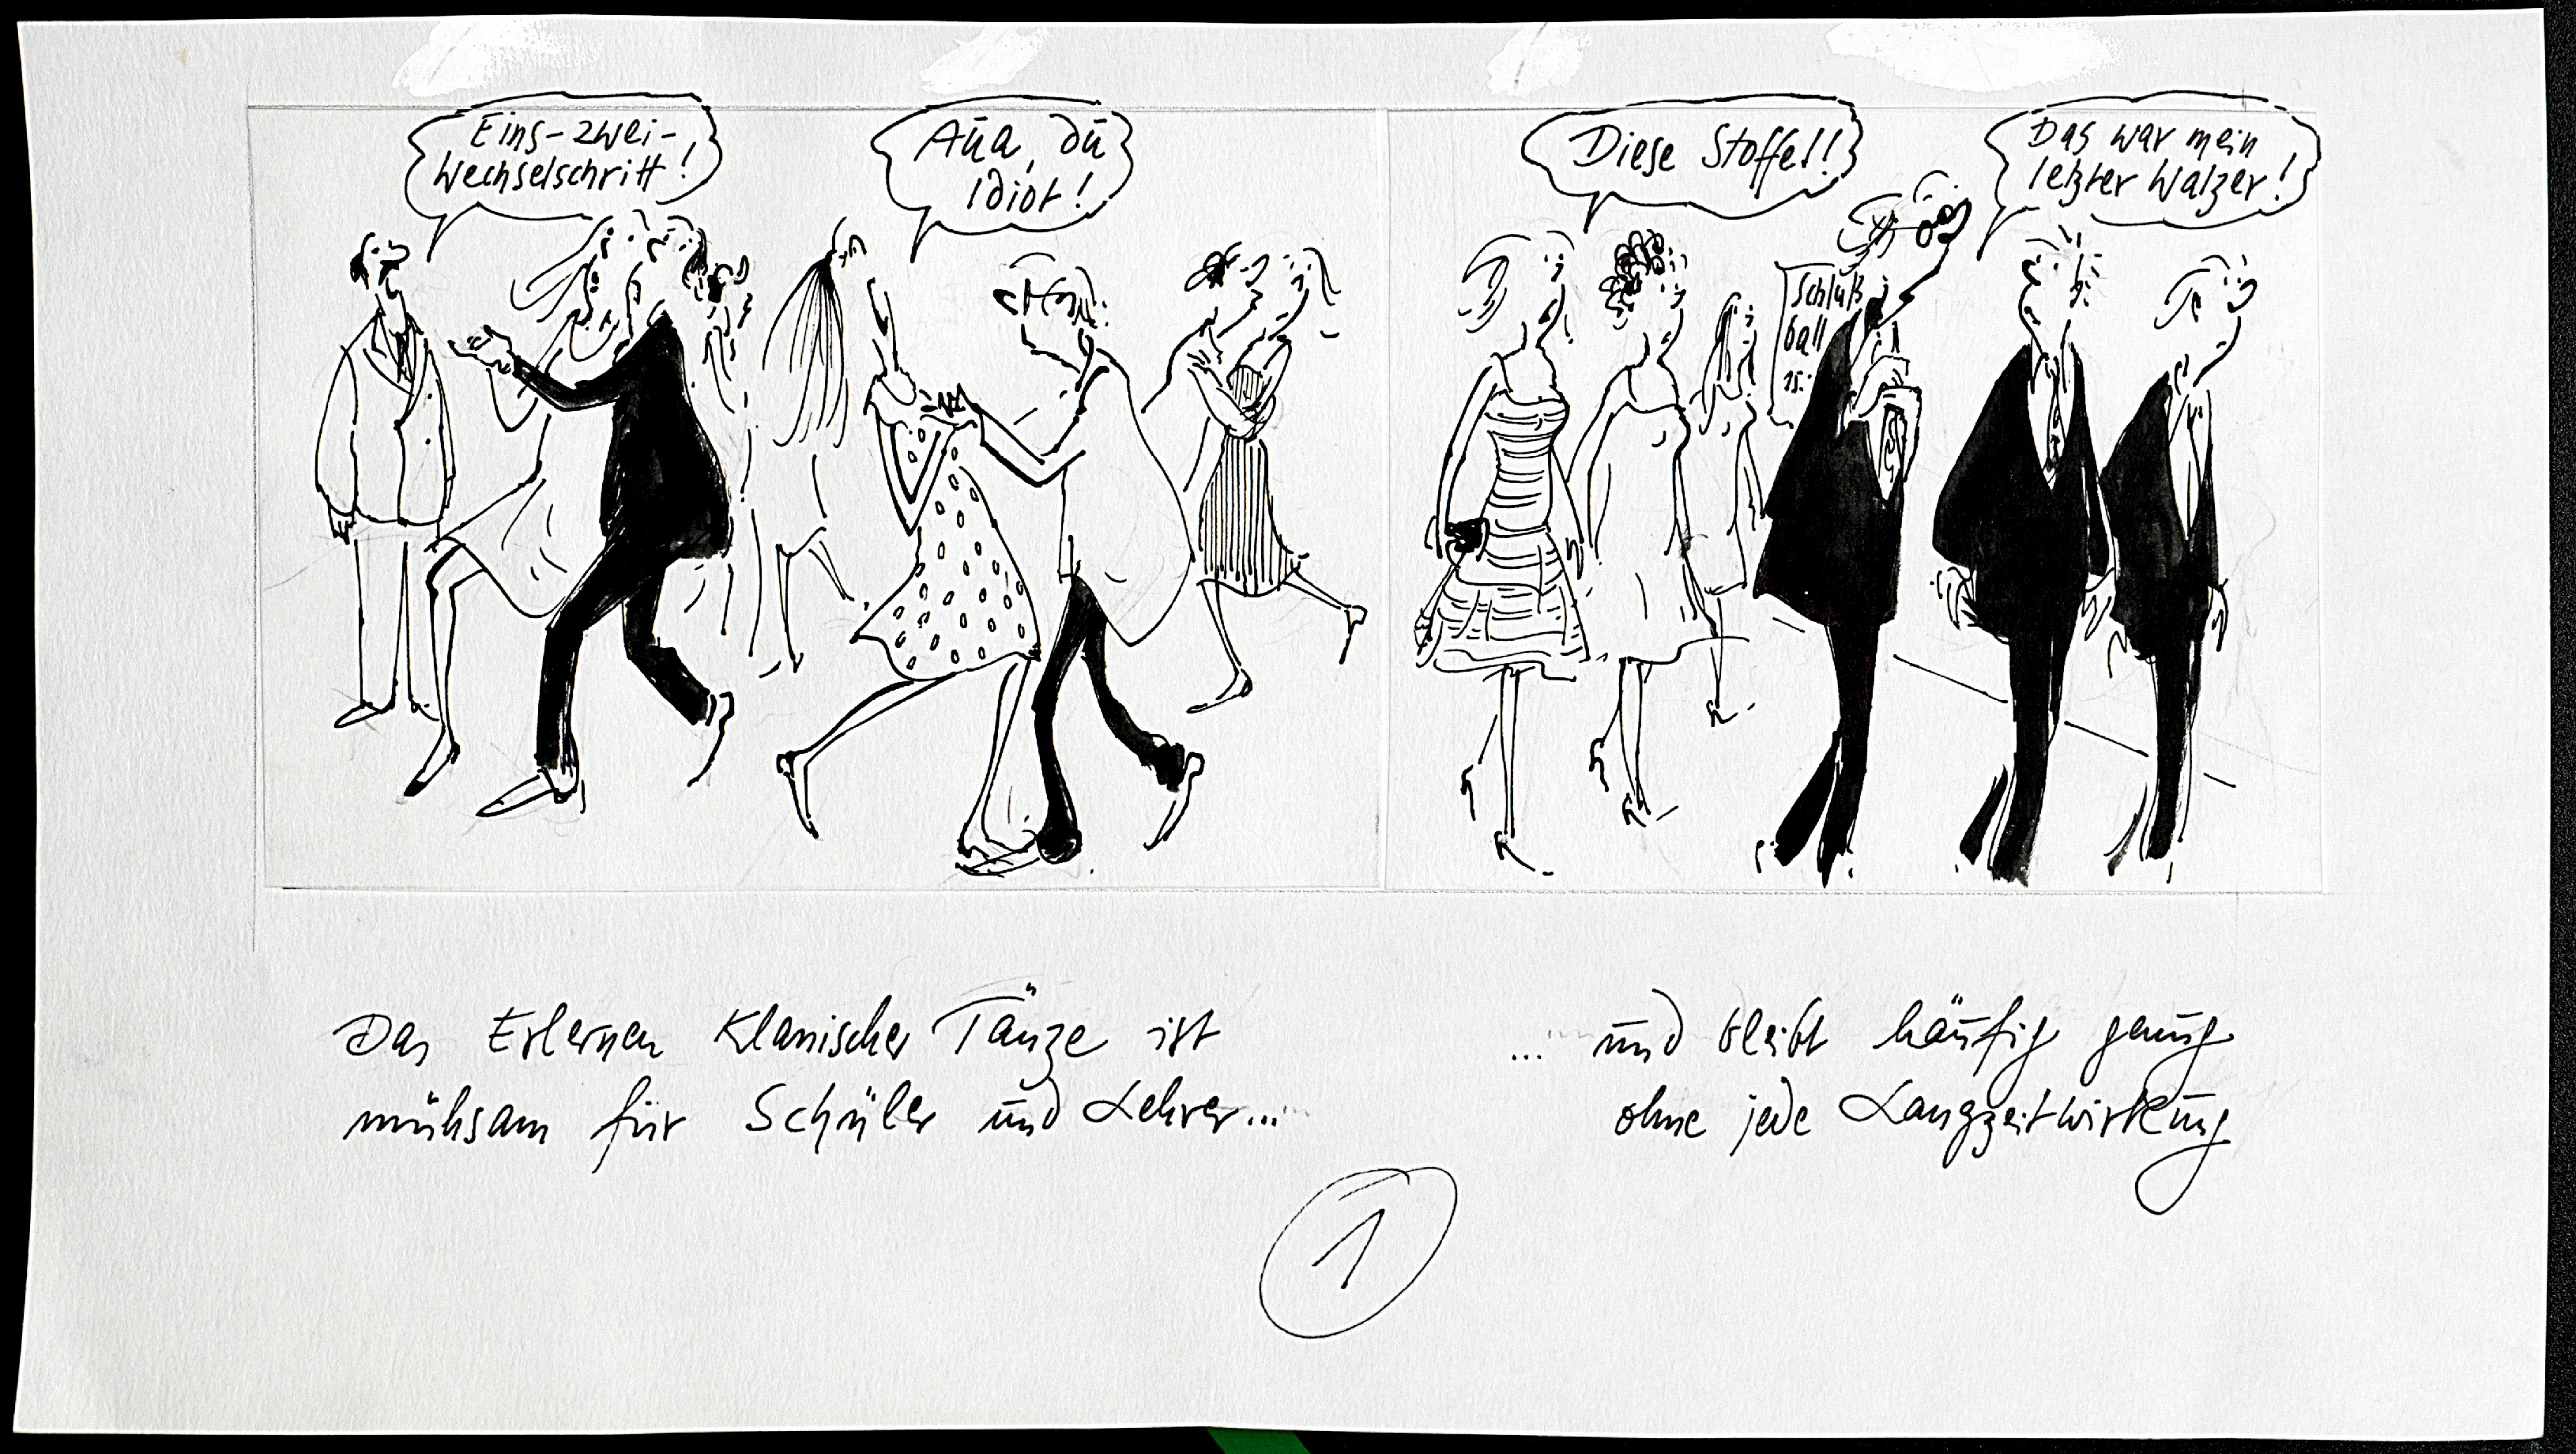 Eins-zwei-
Wechselschritt!
Aua, du
Idiot!
Diese Stoffel!
Das war mein
letzter Walzer!
Schluß
ball
15.-
Das Erlernen Klassischer Tänze ist
mühsam für Schüler und Lehrer...
... und bleibt häufig genug
ohne jede Langzeitwirkung
1